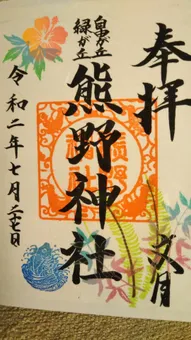 奉拝
文月
亀が丘
緑が丘
熊野神社
令和二年七月二十七日